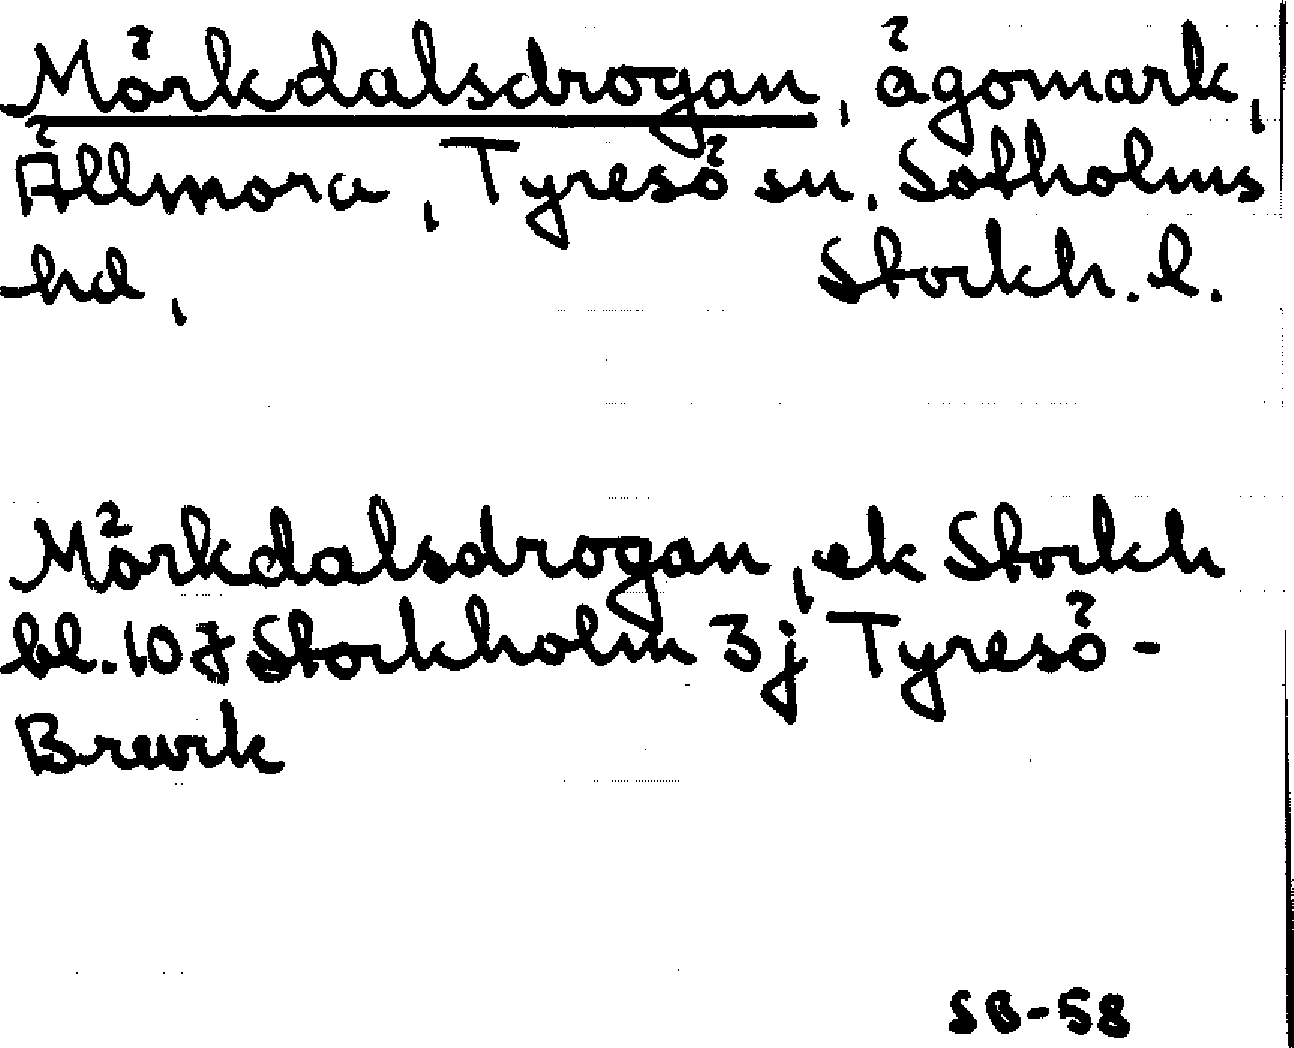 Mörkdalsdrogan, ägomark,
Ällmora, Tyresö sn, Sotholms
hd, Stockh. l.
Mörkdalsdrogan, ek Stockh
bl. 107 Stockholm 3j Tyresö-
Brevik
SB-58